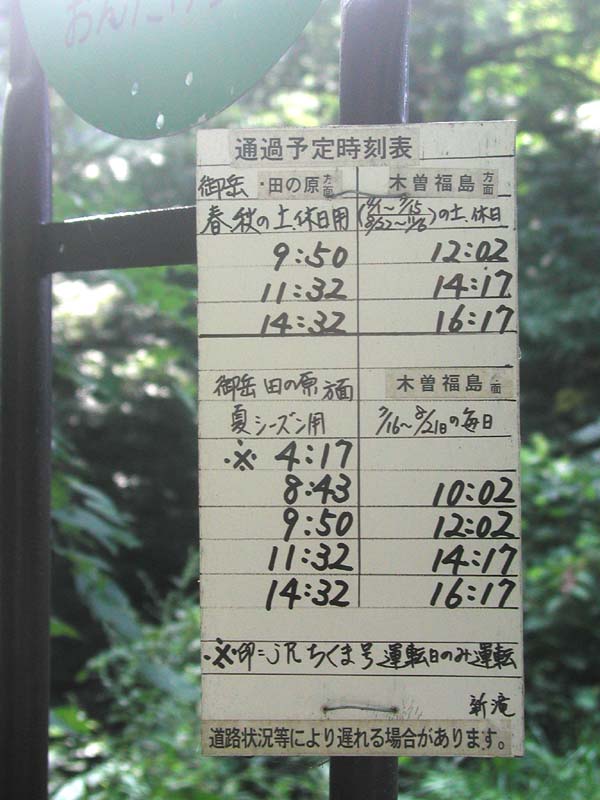 おんたけ
通過予定時刻表
御岳・田の原方面 木曽福島方面
春秋の土、休日用 ( )の土、休日
9:50 12:02
11:32 14:17
14:32 16:17
御岳 田の原方面 木曽福島方面
夏シーズン用 7/16~8/21日の毎日
※ 4:17
8:43 10:02
9:50 12:02
11:32 14:17
14:32 16:17
※印=JRちくま号運転日のみ運転
新滝
道路状況等により遅れる場合があります。